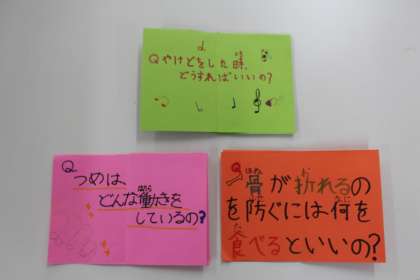 Qやけどをした時、
どうすればいいの?
Q
つめは、
どんな働きを
しているの?
Q骨が折れるの
を防ぐには何を
食べるといいの?